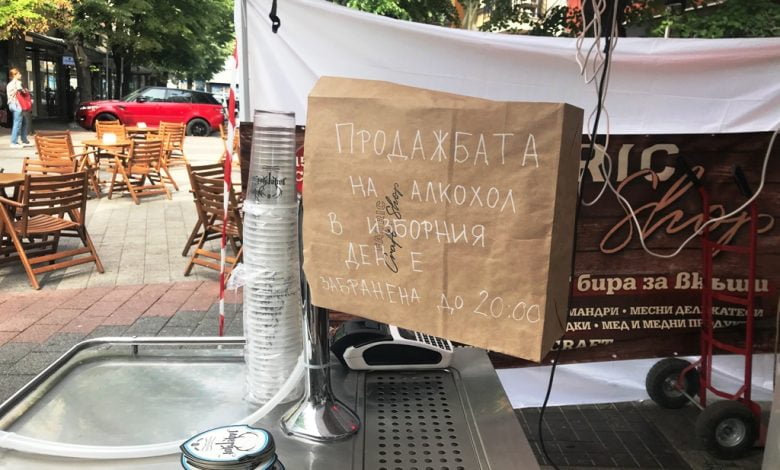 ПРОДАЖБАТА
НА АЛКОХОЛ
В ИЗБОРНИЯ
ДЕН Е
ЗАБРАНЕНА ДО 20:00
Craft Shop
RIC
Shop
бира за вкъщи
МАНДРИ • МЕСНИ ДЕЛИКАТЕСИ
ДКИ • МЕД И МЕДНИ ПРОДУКТ
CRAFT